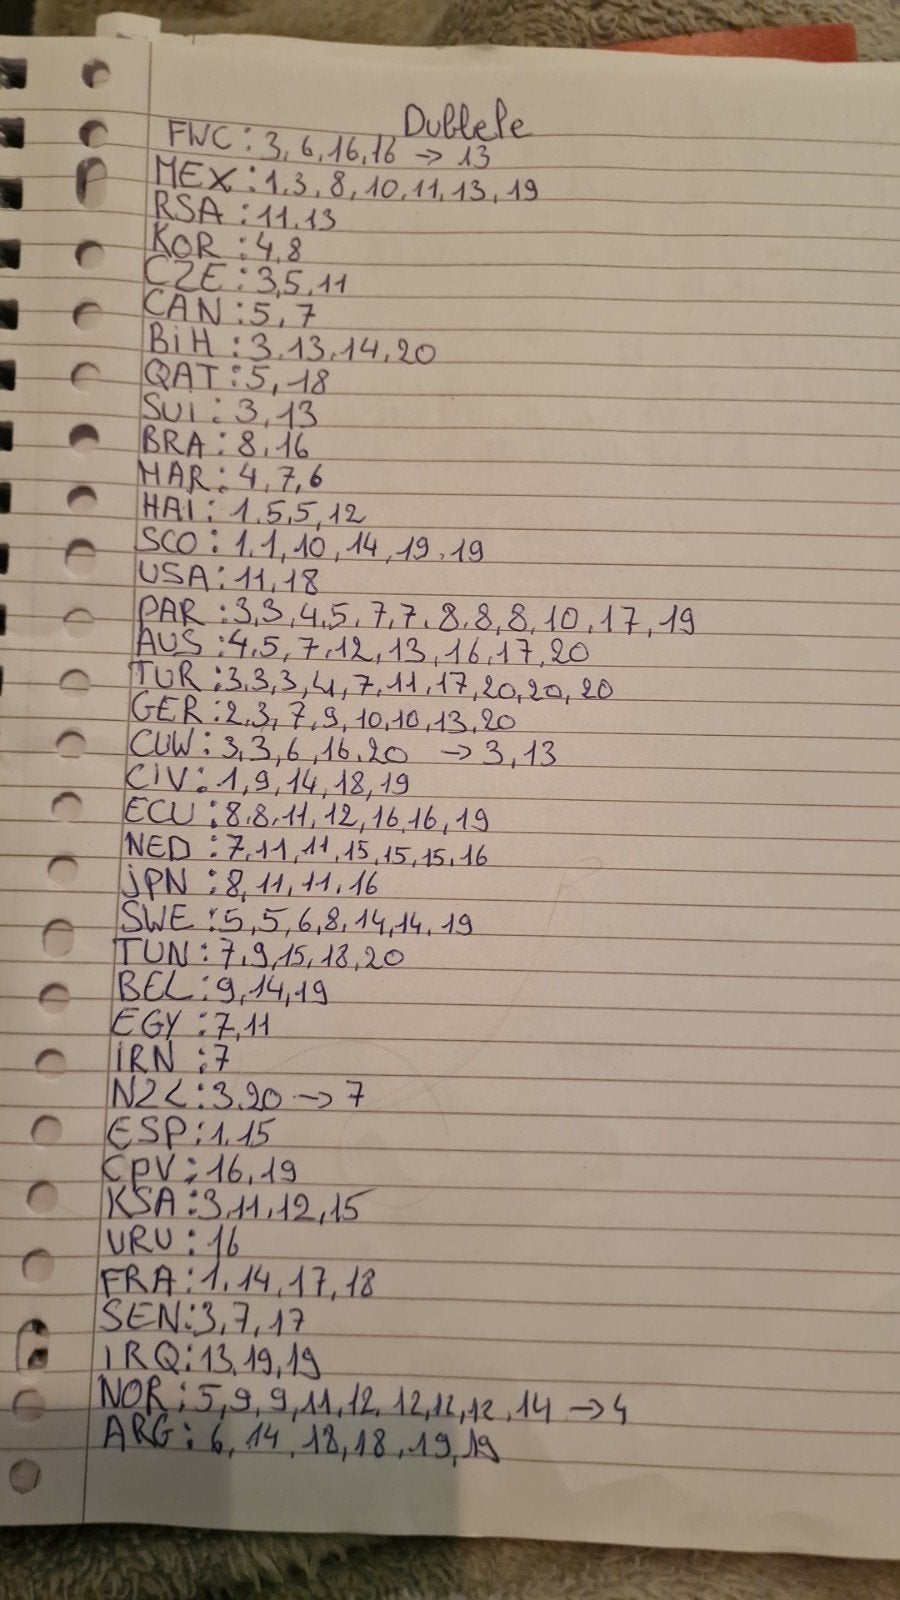 Dublele
FWC: 3, 6, 16, 16 → 13
MEX: 1, 3, 8, 10, 11, 13, 19
RSA: 11, 13
KOR: 4, 8
CZE: 3, 5, 11
CAN: 5, 7
BiH: 3, 13, 14, 20
QAT: 5, 18
SUI: 3, 13
BRA: 8, 16
MAR: 4, 7, 6
HAI: 1, 5, 5, 12
SCO: 1, 1, 10, 14, 19, 19
USA: 11, 18
PAR: 3, 3, 4, 5, 7, 7, 8, 8, 8, 10, 17, 19
AUS: 4, 5, 7, 12, 13, 16, 17, 20
TUR: 3, 3, 3, 4, 7, 11, 17, 20, 20, 20
GER: 2, 3, 7, 9, 10, 10, 13, 20
CUW: 3, 3, 6, 16, 20 → 3, 13
CIV: 1, 9, 14, 18, 19
ECU: 8, 8, 11, 12, 16, 16, 19
NED: 7, 11, 11, 15, 15, 15, 16
jPN: 8, 11, 11, 16
SWE: 5, 5, 6, 8, 14, 14, 19
TUN: 7, 9, 15, 18, 20
BEL: 9, 14, 19
EGY: 7, 11
IRN: 7
NZL: 3, 20 → 7
ESP: 1, 15
CPV: 16, 19
KSA: 3, 11, 12, 15
URU: 16
FRA: 1, 14, 17, 18
SEN: 3, 7, 17
IRQ: 13, 19, 19
NOR: 5, 9, 9, 11, 12, 12, 12, 12, 14 → 4
ARG: 6, 14, 18, 18, 19, 19